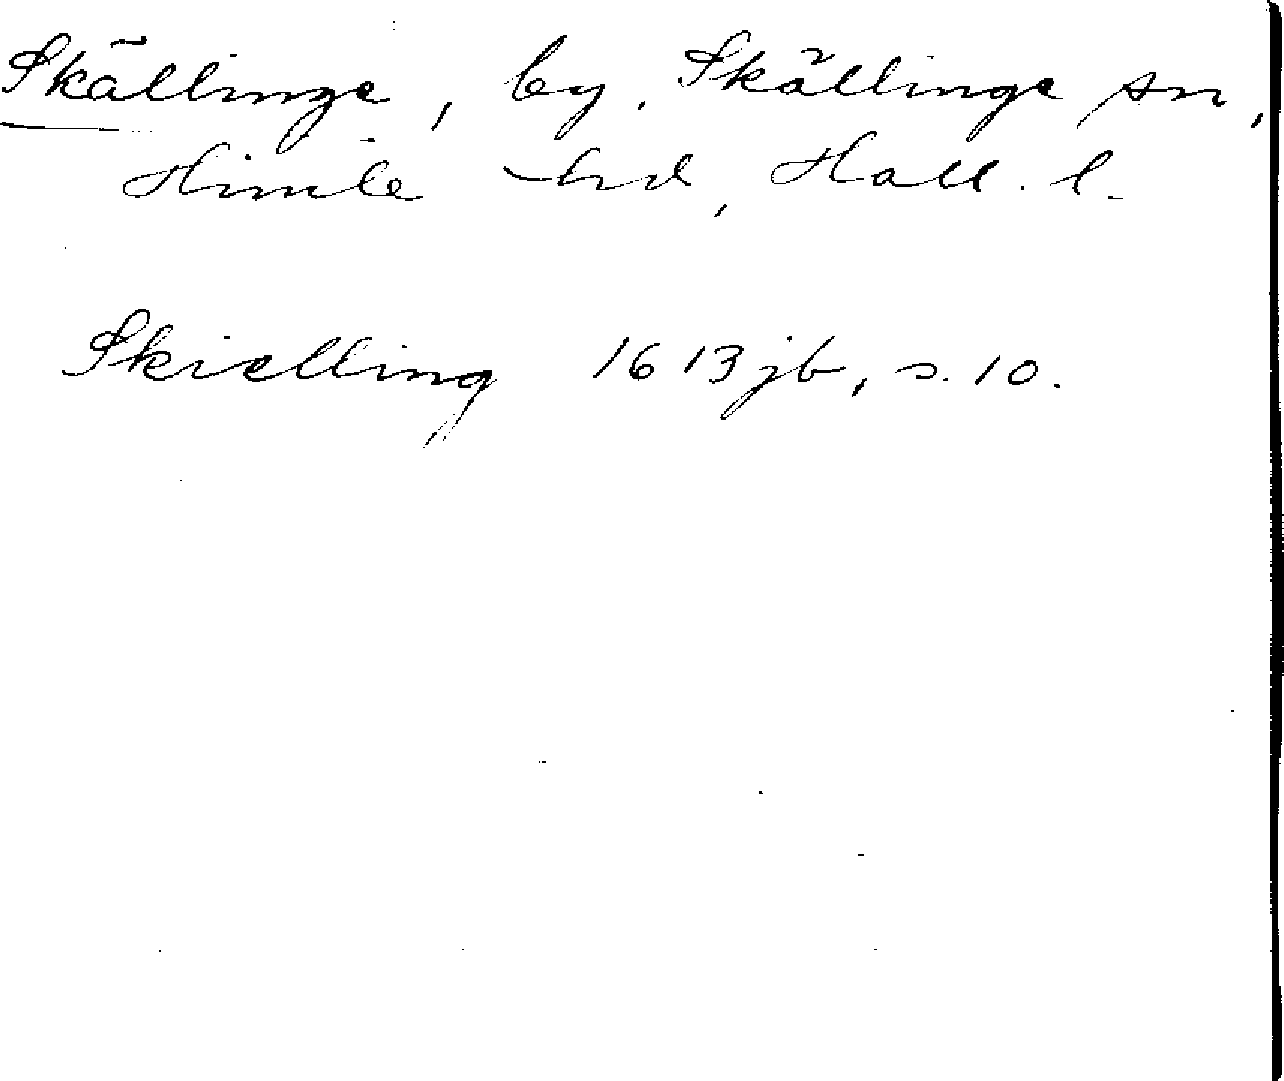 Skällinge, by, Skällinge sn,
Himle hd, Hall. l.
Skielling 1613 jb, s. 10.